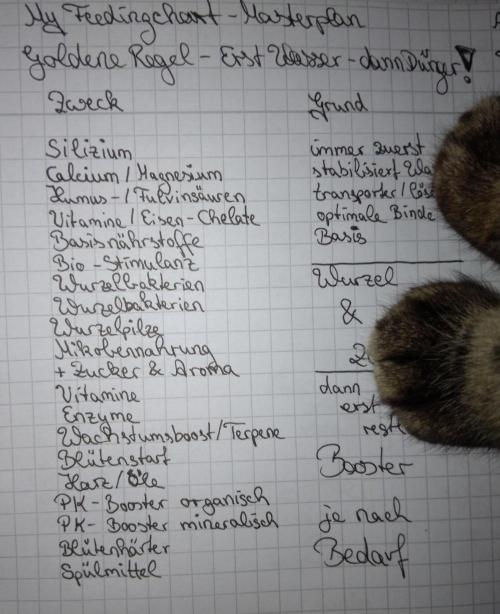 My Feedingchart - Masterplan
Goldene Regel - Erst Wasser - dann Dünger!
Zweck Grund
Silizium immer zuerst
Calcium / Magnesium stabilisiert Wa
Humus- / Fulvinsäuren transporter / löse
Vitamine / Eisen-Chelate optimale Binde
Basisnährstoffe Basis
Bio-Stimulanz
Wurzelbakterien Wurzel
Wurzelbakterien &
Wurzelpilze
Mikrobennahrung
+ Zucker & Aroma
Vitamine dann
Enzyme erst
Wachstumsboost/Terpene rest
Blütenstart Booster
Harz/Öle
PK-Booster organisch
PK-Booster mineralisch je nach
Blütenhärter Bedarf
Spülmittel